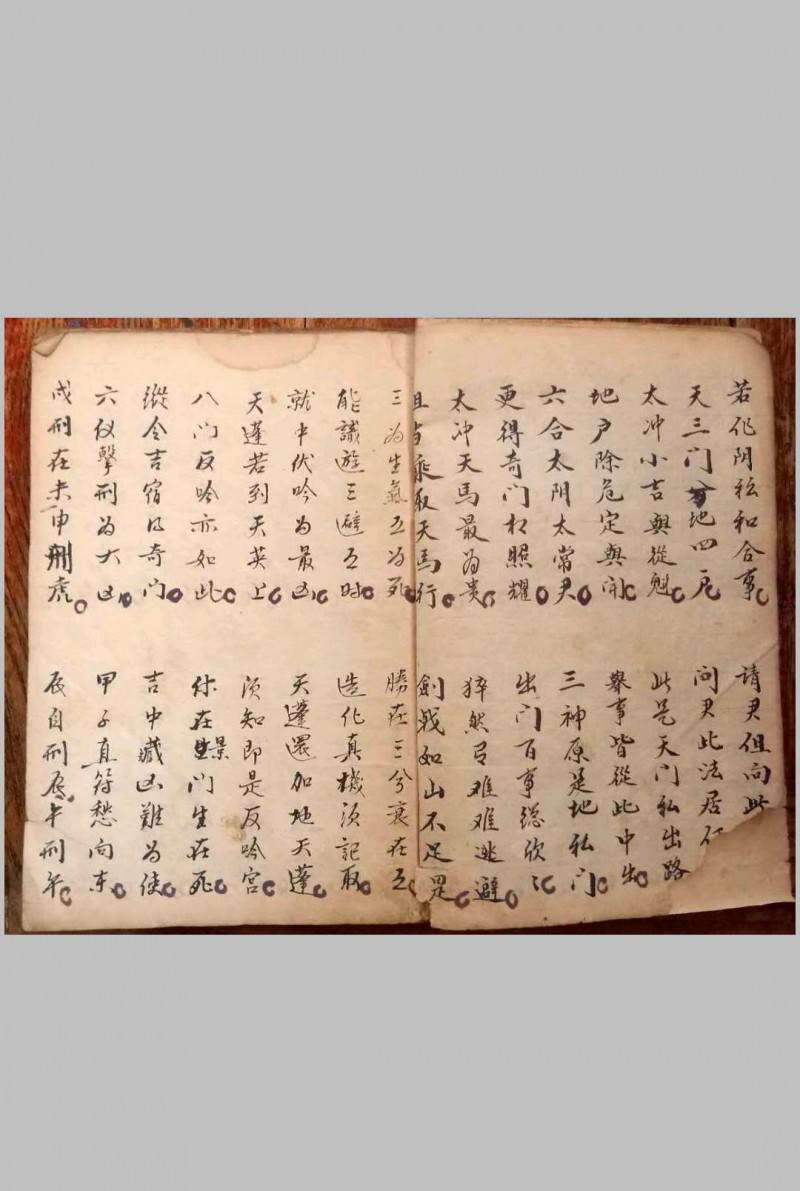 若作阴私和合事
請君但向此
天三门兮地四户
问君此法居
太冲小吉與從魁
此是天门私出路
地户除危定與開
舉事皆從此中出
六合太阴太常君
三神原是地私门
更得奇门相照耀
出门百事総欣〻
太冲天馬最為贵
猝然有难难逃避
且当乘取天馬行
劍戟如山不足畏
三為生氣五為死
勝在三兮衰在五
能識遊三避五时
造化真機须記取
就中伏吟為最凶
天蓬還加地天蓬
天蓬若到天英上
须知即是反吟宫
八门反吟亦如此
休在景门生在死
縱令吉宿得奇门
吉中藏凶難為使
六仪擊刑為大凶
甲子直符愁向东
戌刑在未申刑虎
辰自刑辰午刑午